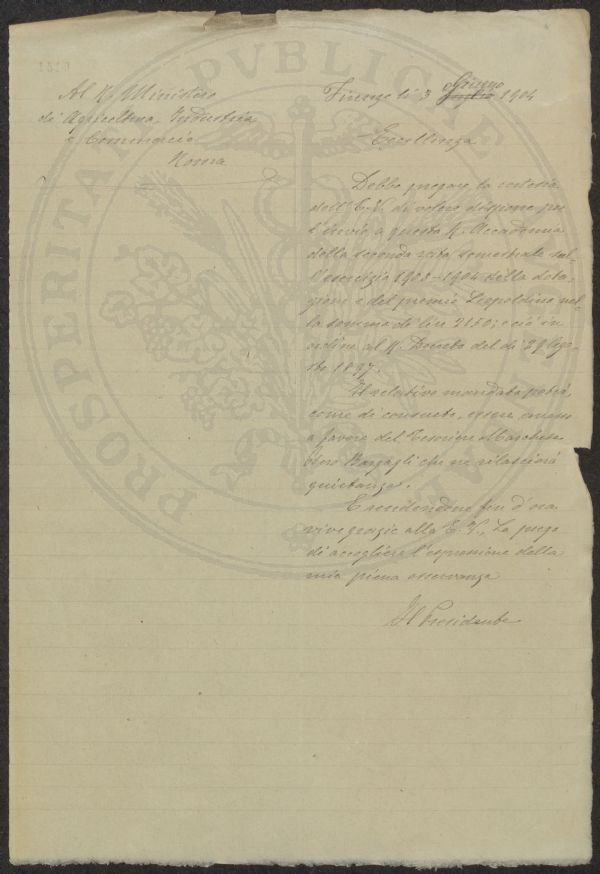 Al R. Ministero
di Agricoltura, Industria
e Commercio
Roma
Firenze lì 3 Giugno Luglio 1904
Eccellenza
Debbo pregare la cortesia
dell' E. V. di volere disporre per
l'invio a questa R. Accademia
della seconda rata semestrale sul-
l'esercizio 1903-1904 della dota-
zione e del premio Leopoldino nel-
la somma di lire 2150; e ciò in
ordine al R. Decreto del dì 29 Ago-
sto 1897.
Il relativo mandato potrà,
come di consueto, essere emesso
a favore del Tesoriere Marchese
Bargagli che ne rilascierà
quietanza.
E rendendone fin d'ora
vive grazie alla E. V., La prego
di accogliere l'espressione della
mia piena osservanza
Il Presidente
PROSPERITATI PUBLICAE